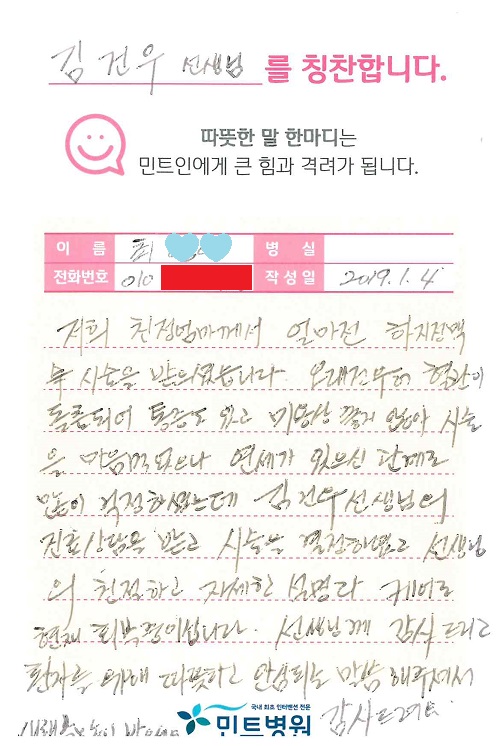 김건우 선생님 를 칭찬합니다.
따뜻한 말 한마디는
민트인에게 큰 힘과 격려가 됩니다.
이 름 최 병 실
전화번호 010 작성일 2019. 1. 4
저희 친정엄마께서 얼마전 하지정맥
류 시술을 받으셨습니다. 오래전부터 혈관이
돌출되어 통증도 있고 미용상 좋지 않아 시술
을 마음먹었으나 연세가 있으신 관계로
많이 걱정하였는데 김건우선생님의
진료상담을 받고 시술을 결정하였고 선생님
의 친절하고 자세한 설명과 케어로
현재 회복중이십니다. 선생님께 감사드리고
환자를 위해 따뜻하고 안심되는 말씀 해주셔서
감사드려요
국내 최초 인터벤션 전문
민트병원